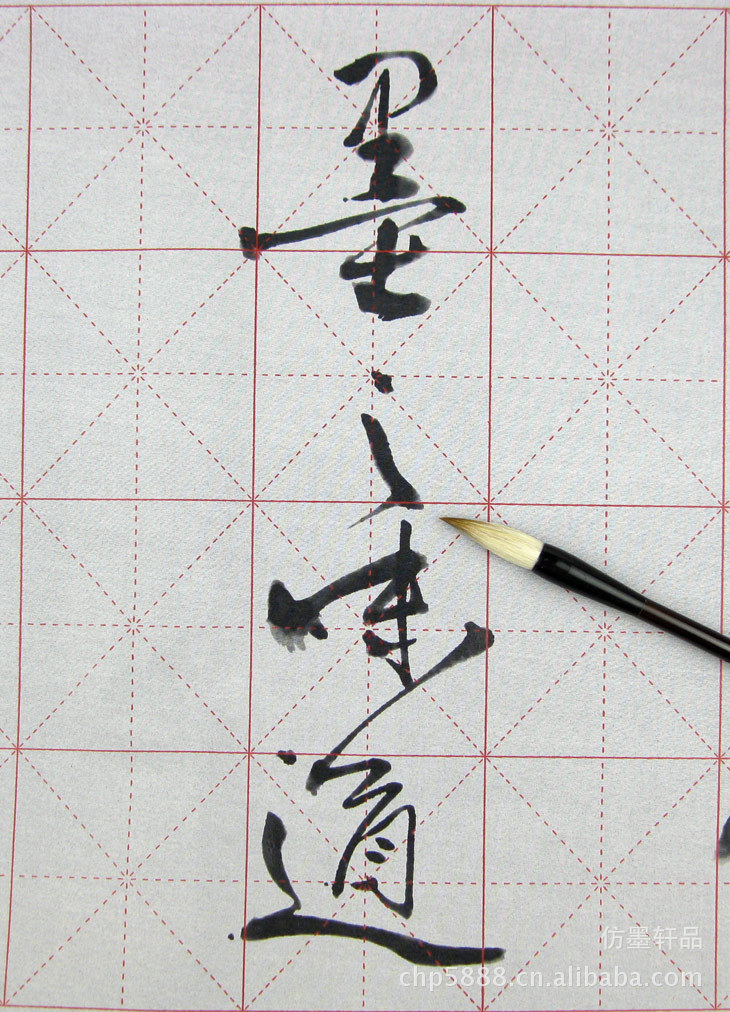 墨之味道
仿墨轩品
chp5888.cn.alibaba.com